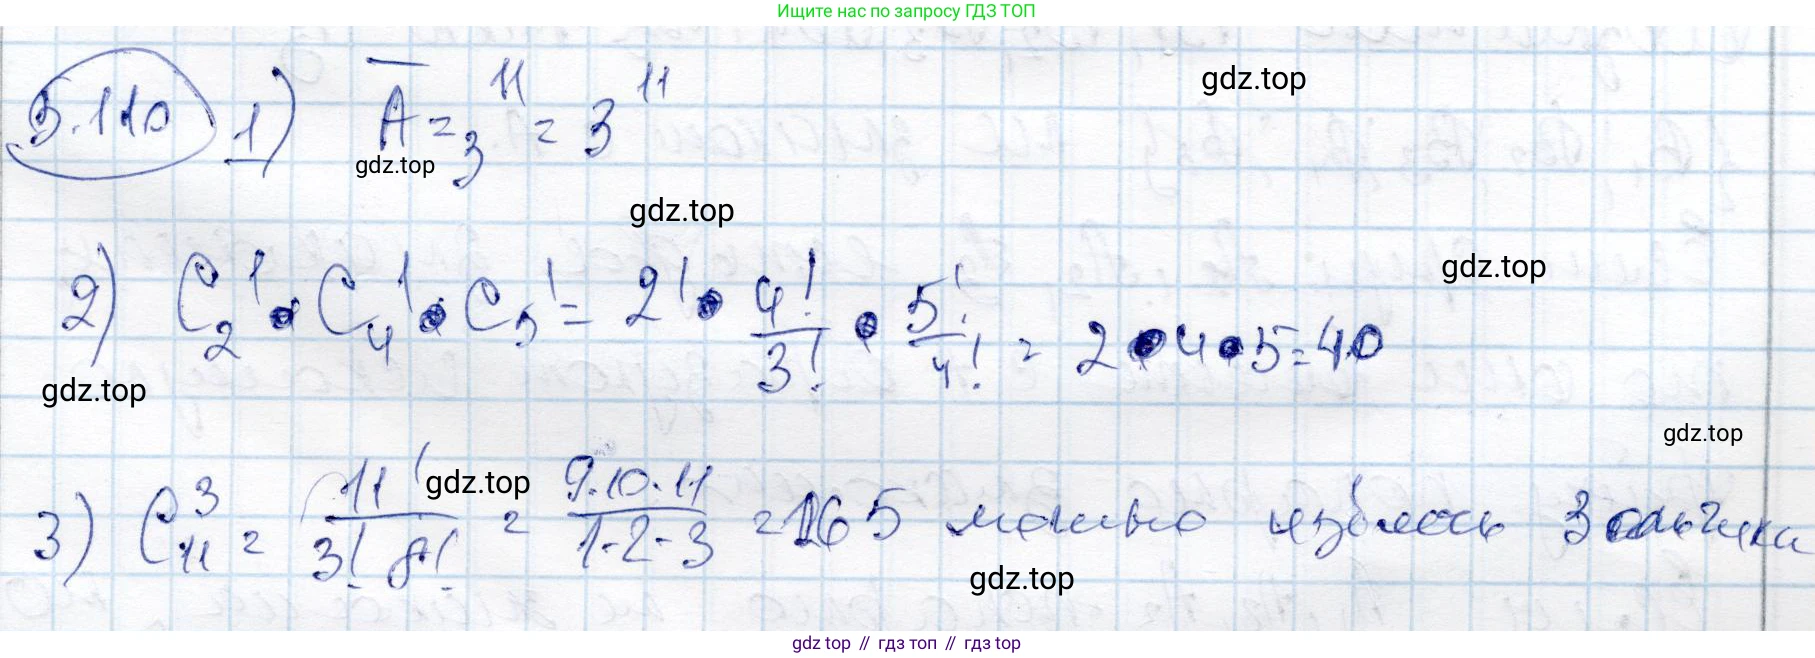 Ищите нас по запросу ГДЗ ТОП
gdz.top
5.110 1) A̅ = ₃¹¹ = 3¹¹
gdz.top
gdz.top
gdz.top
2) C₂¹ · C₄¹ · C₅¹ = 2! · 4!/3! · 5!/4! = 2 · 4 · 5 = 40
gdz.top
gdz.top
3) C₁₁³ = 11!/3! 8! = 9·10·11/1·2·3 = 165 можно избрать 3
gdz.top
gdz.top
gdz top // гдз топ // гдз top